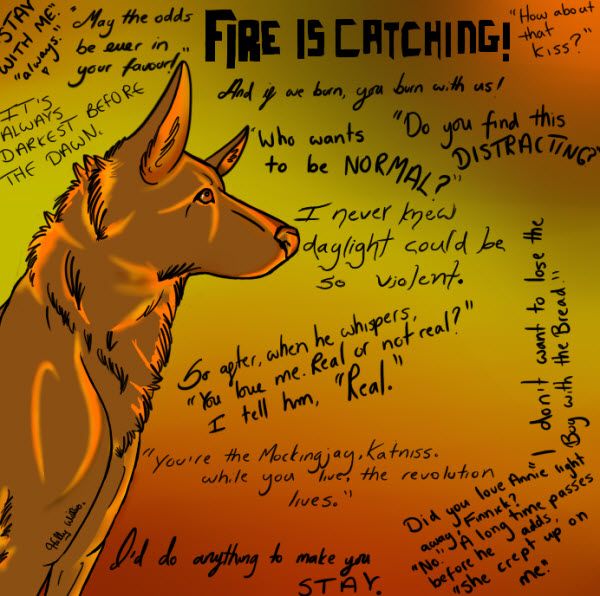 STAY
WITH ME"
"always."
"May the odds
be ever in
your favour!"
FIRE IS CATCHING!
And if we burn, you burn with us!
"How about
that
kiss?"
IT'S
ALWAYS
DARKEST BEFORE
THE DAWN.
"Who wants
to be NORMAL?"
"Do you find this
DISTRACTING?"
I never knew
daylight could be
so violent.
"I don't want to lose the
Boy with the Bread."
So after, when he whispers,
"You love me. Real or not real?"
I tell him, "Real."
"You're the Mockingjay, Katniss.
while you live, the revolution
lives."
Did you love Annie right
away, Finnick?
"No." A long time passes
before he adds,
"she crept up on
me."
I'd do anything to make you
STAY.